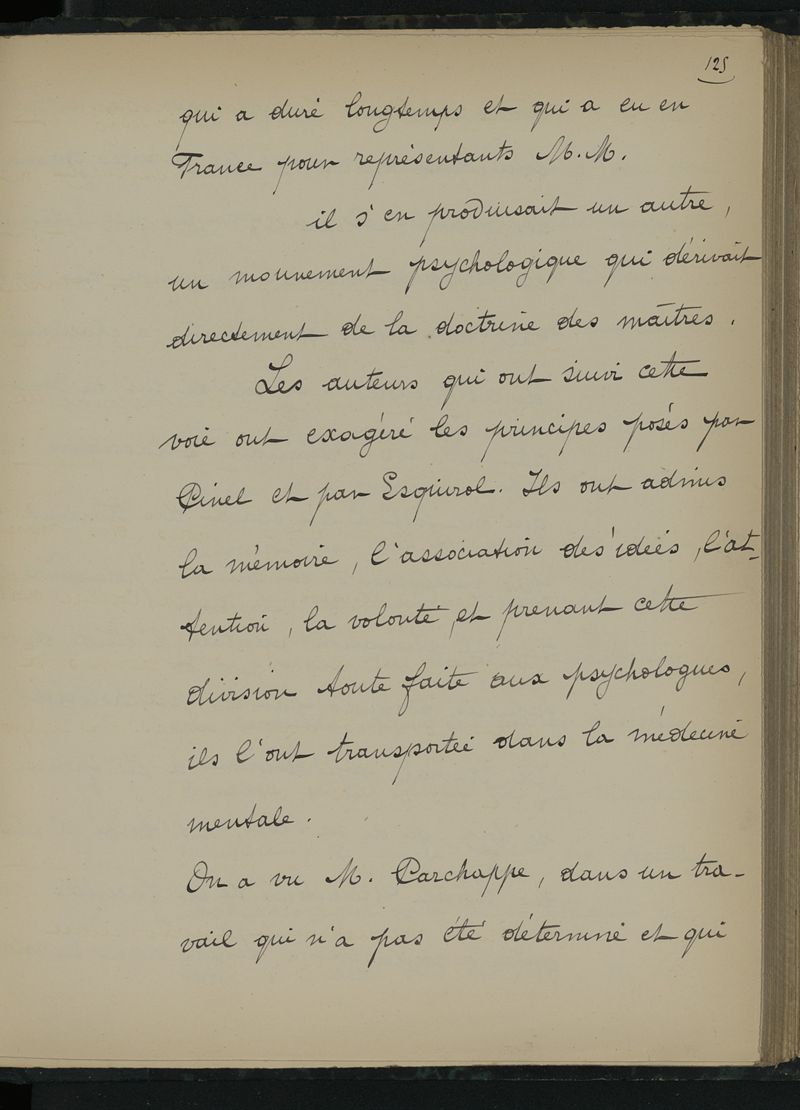 125
qui a duré longtemps et qui a eu en
France pour représentants M.M.
il s'en produisait un autre,
un mouvement psychologique qui dérivait
directement de la doctrine des maîtres.
Les auteurs qui ont suivi cette
voie ont exagéré les principes posés par
Pinel et par Esquirol. Ils ont admis
la mémoire, l'association des idées, l'at-
tention, la volonté et prenant cette
division toute faite aux psychologues,
ils l'ont transportée dans la médecine
mentale.
On a vu M. Parchappe, dans un tra-
vail qui n'a pas été déterminé et qui